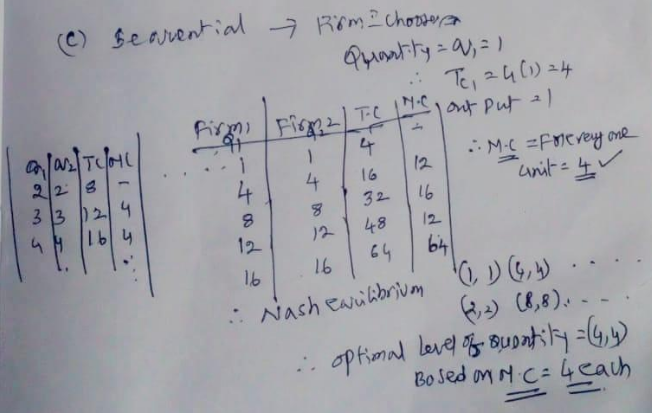 (c) Sequential → Firm-I chooses
Quantity = q1 = 1
∴ TC1 = 4(1) = 4
Firm1 q1 | Firm2 q2 | T.C | M.C
output = 1
1 | 1 | 4 | -
∴ M.C = For every one
unit = 4 ✓
4 | 4 | 16 | 12
8 | 8 | 32 | 16
12 | 12 | 48 | 12
16 | 16 | 64 | 64
q1 | q2 | TC | MC
2 | 2 | 8 | -
3 | 3 | 12 | 4
4 | 4 | 16 | 4
∴ Nash equilibrium
(1, 1) (4, 4) .....
(2, 2) (8, 8) .....
∴ optimal level of quantity = (4, 4)
Based on M.C = 4 each